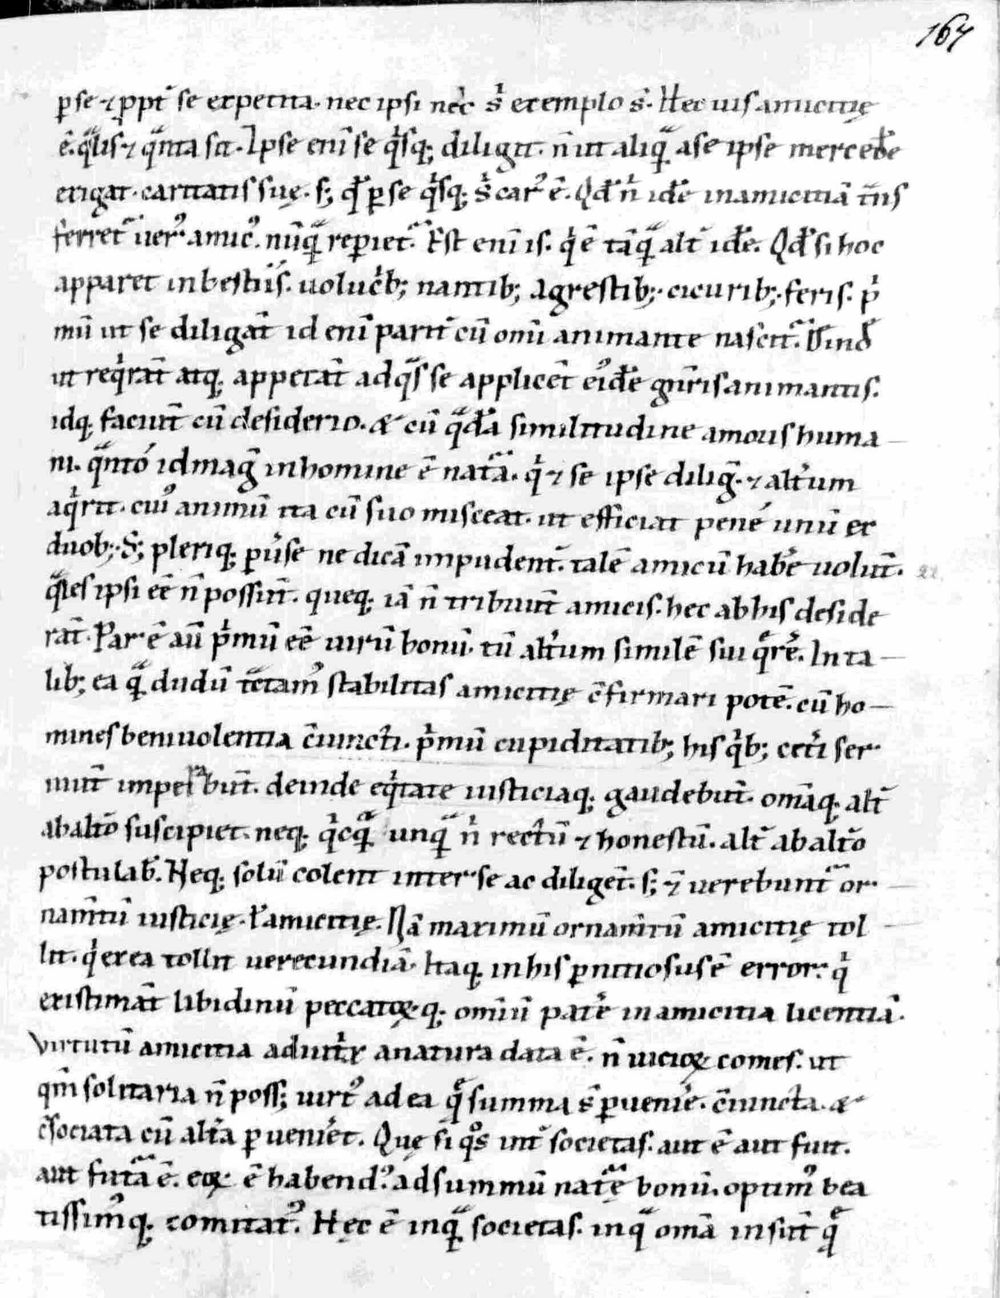 167
ꝑse ⁊ ꝓpt᷑ se expetita. nec ipsi nec̉ s̄ exemplo s̄. Hec uis amicitię
ē. q̄lis ⁊ q̄nta sit. Ipse eni se q̉sq; diligit. n̄ ut aliq̄ a se ipse mercedē
exigat. caritatis suę. s; qđ ꝑ se q̉sq; s̉ carꝰ ē. Qđ n̉ idē in amicitiā t̄ns
ferret᷑ uerꝰ amicꝰ. nūq̄ repiet᷑. Est eni is. q̉ ē tāq̄ alt᷑ idē. Qđ si hoc
apparet in bestiis. uolucb; nantib; agrestib;. cicurib;. feris. p̉
mū ut se diligāt id eni parit᷑ cū omī animante nascit᷑. Deinđ
ut req̉rāt atq; appetāt ad q̄s se applicēt eiꝰdē gn̄ris animantis.
idq; faciūt cū desiderio. & cū q̄dā similitudine amoris huma
ni. q̄nto id maḡ in homine ē natā. q̉ ⁊ se ipse diliḡ. ⁊ alt᷑um
aq̉rit. cuiꝰ animū ita cū suo misceat. ut efficiat pene unū ex
duob;. S; pleriq; puse ne dicā impudent᷑. talē amicū habē uolūt.
q̄les ipsi eē n̄ possūt. queq; iā n̄ tribuūt amicis. hec ab his deside
rāt. Par ē aū p̉mū eē uirū bonū. tū alt᷑um similē sui q̄rē. In ta
lib; ea q̄ dudū t̄ctamꝰ stabilitas amicitię c̄firmari potē. cū ho
mines beniuolentia c̄iuncti. p̉mū cupiditatib; his q̉b; cet᷑i ser
uiūt imperabūt. deinde eq̉tate iusticiaq; gaudebūt. omāq; alt᷑
ab alt᷑o suscipiet. neq; q̉cq̄ unq̄ n̉ rectū ⁊ honestū. alt᷑ ab alt᷑o
postulab᷑. Neq; solū colent inter se ac diligēt. s; ⁊ uerebunt᷑ or
nam̄tū iusticię. ł amicitię. Nā maximū ornam̄tū amicitię tol
lit. q̉ ex ea tollit uerecundiā. Itaq; in his ꝑnitiosus ē error. q̉
existimāt libidinū peccatoꝝq; omniū patē in amicitia licentiā.
Virtutū amicitia adiutx̉ a natura data ē. n̄ uicioꝝ comes. ut
qm̄ solitaria n̄ poss; uirtꝰ ad ea q̄ summa s̄ ꝑuenire. c̄iuncta. &
c̄sociata cū alt᷑a ꝑueniret. Quę si q̄s int᷑ societas. aut ē aut fuit.
aut futā ē. eoꝝ ē habendꝰ. ad summū natę bonū. optimꝰ bea
tissimꝰq; comitatꝰ. Hęc ē inq̄ societas. in q̄ omā insūt q̄